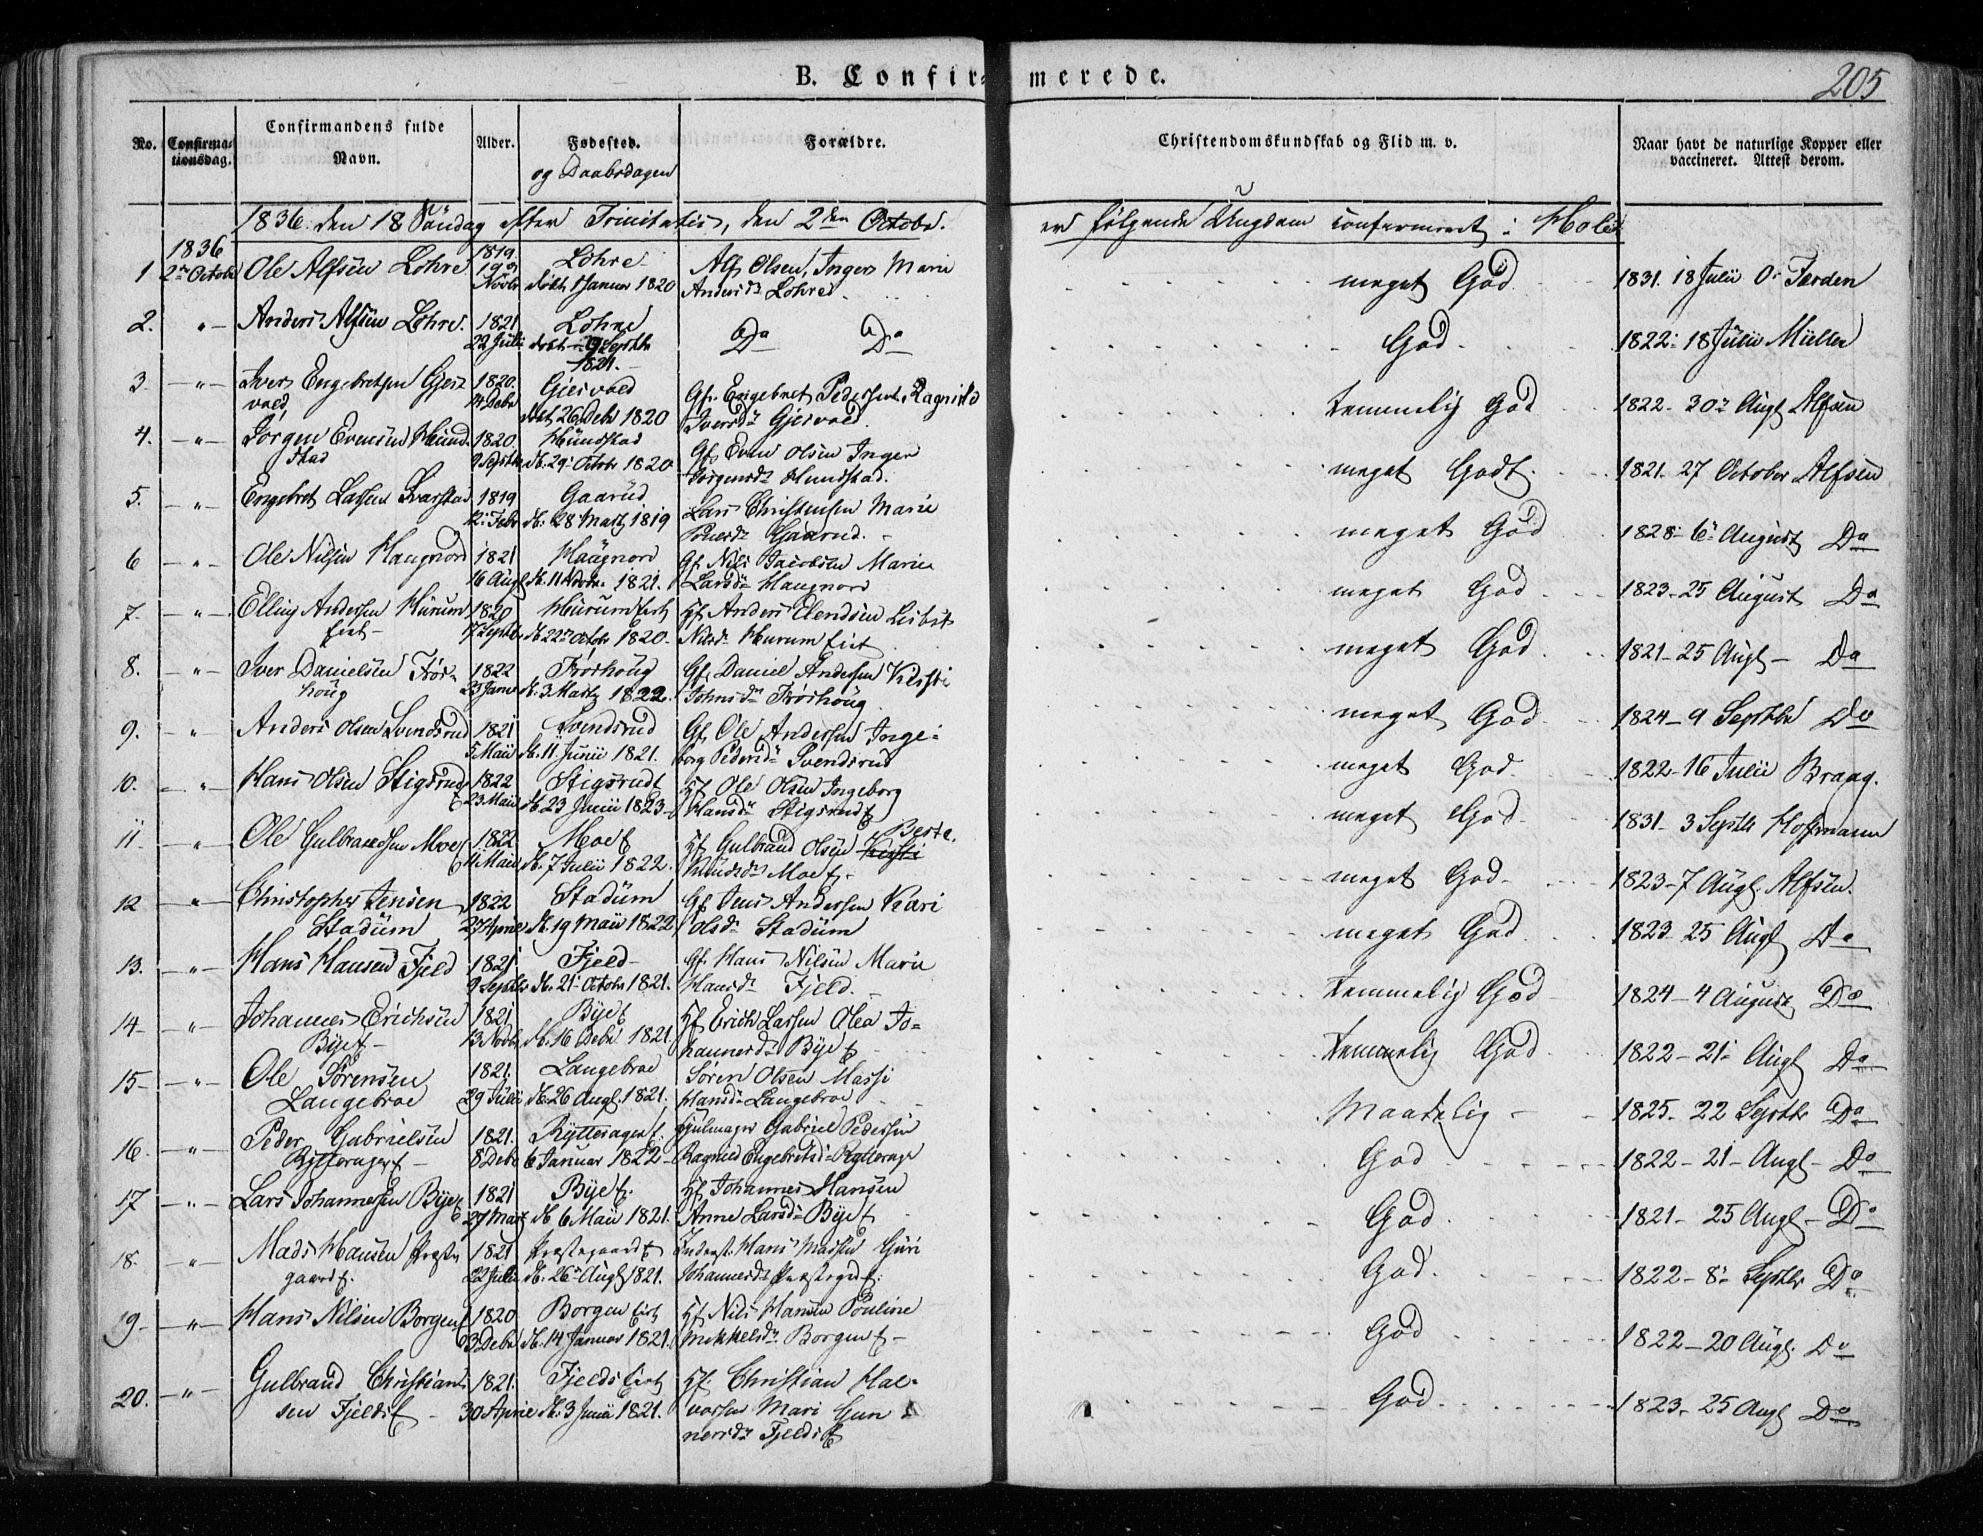 B. Confirmerede.
205
No.
Confirmationsdag.
Confirmandens fulde Navn.
Alder.
Fødested.
og Daabsdagen
Forældre.
Christendomskundskab og Flid m. v.
Naar havt de naturlige Kopper eller vaccineret. Attest derom.
1836 den 18 Søndag efter Trinitatis, den 2den Octobr. er følgende Ungdom confirmeret i Hole:
1 1836 2den Octobr Ole Alfsen Lohre 1819 19 Novbr Lohre døbt 1 Januar 1820 Alf Olsen, Inger Marie Andersdr Lohre. meget God 1831. 18 Julii Færden
2. " Anders Alfsen Lohre. 1821 22 Julii Lohre døbt 9 Septbr 1821. Do Do God 1822 18 Julii Müller
3. " Iver Engebretsen Gjesvold 1820. 14 Debr Gjesvold døbt 26 Debr 1820 Gf. Engebret Pedersen, Ragnild Iversdr Gjesvold. temmelig God 1822. 30 Augt Alfsen
4. " Jørgen Evensen Mundstad 1820. 9 Septbr Mundstad db. 29 Octobr 1820 Gf. Even Olsen Inger Jørgensdr Mundstad. meget Godt. 1821. 27 October Alfsen
5. " Engebret Larsen Svarstad 1819 12 Febr Gaarud db. 28 Marts 1819 Lars Christensen Marie Gaarud. meget God 1828 6 August Do
6 " Ole Nilsen Haugnord 1821 16 Augt Haugnord db. 11 1821. Gf. Nils Jacobsen Marie Larsdr Haugnord meget God 1823. 25 August Do
7. " Elling Andersen Hurum Eiet 1820 17 Septbr Hurum Eiet db. 22 Octobr 1820. Hf. Anders Elendsen Lisbet Nilsdr Hurum Eiet meget God 1821 - 25 Augt - Do
8. " Iver Danielsen Frøshoug 1822 23 Janr Frøshoug db. 3 Marts 1822. Gf. Daniel Andersen Kirsti Johnsdr Frøshoug meget God 1824 - 9 Septbr Do
9. " Anders Olsen Svendsrud 1821 5 Maii Svendsrud db. 11. Junii 1821. Gf. Ole Andersen Ingeborg Pedersdr Svendsrud meget God. 1822 - 16 Julii Braag.
10. " Hans Olsen Stigsrud 1822 23 Maii Stigsrud db. 23 Junii 1823. Hf. Ole Olsen Ingeborg Hansdr Stigsrud meget God 1831 - 3 Septbr Hoffmann
11. " Ole Gulbrandsen Moe 1822 11 Maii Moe db. 7 Julii 1822. Hf. Gulbrand Olsen Kirsti Berte. Knudsdr Moe meget God. 1823 - 7 Augt. Alfsen.
12 " Christopher Jensen Stadum 1822 27 April Stadum db. 19 Maii 1822 Gf. Jens Andersen Kari Olsdr Stadum meget God 1823 - 25 Augt Do
13. " Hans Hansen Fjeld 1821 9 Septbr Fjeld db. 21 Octobr 1821. Gf. Hans Nilsen Marie Hansdr Fjeld. temmelig God 1824 - 4 August Do
14 " Johannes Erichsen Bye 1821 13 Novbr Bye db. 16 Debr 1821 Hf. Erich Larsen Olea Johannesdr Bye temmelig God 1822 - 21 Augt Do
15 " Ole Sørensen Langebroe 1821. 29 Julii Langebroe db. 26 Augt. 1821. Søren Olsen Massi Hansdr Langebroe Maadelig 1825. 22 Septbr Do
16. " Peder Gabrielsen Rytterager 1821. 8 Debr Rytterager 6 Januar 1822 Hjulmager Gabriel Pedersen Ragnild Engebretsdr Rytterager God 1822 - 21 - Augt - Do
17 " Lars Johannesen Bye 1821 27 Marts Bye db. 6 Maii 1821. Hf. Johannes Hansen Anne Larsdr Bye God 1821 - 25 Augt - Do
18. " Mads Hansen Præstegaard 1821 22 Julii Præstegaard db. 26 Augt 1821. Inderst. Hans Madsen Guri Johannesdr Præstegd God. 1822 - 8 Septbr Do
19. " Hans Nilsen Borgen 1820 3 Debr Borgen Eiet db. 14 Januar 1821. Hf. Nils Hansen Pouline Mikkelsdr Borgen God 1822 - 20 Augt. Do
20. " Gulbrand Christiansen Fjelds 1821. 30 April Fjelds Eiet db. 3 Junii 1821. Hf. Christian Halvorsen Mari Gunnersdr Fjelds God 1823. 25 Augt Do